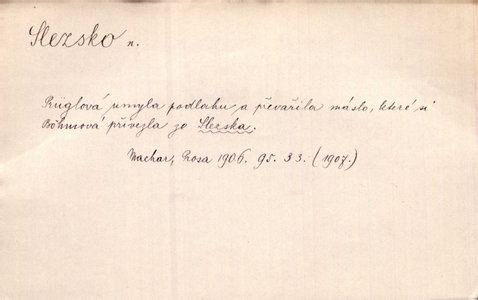 Slezsko n.
Rüglová umyla podlahu a převařila máslo, které si
Böhmová přivezla ze Slezska.
Machar, Prosa 1906. 95. 33. (1907.)